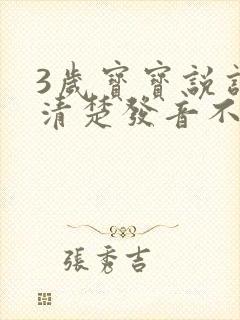 3歲寶寶説
清楚發音不
張秀吉